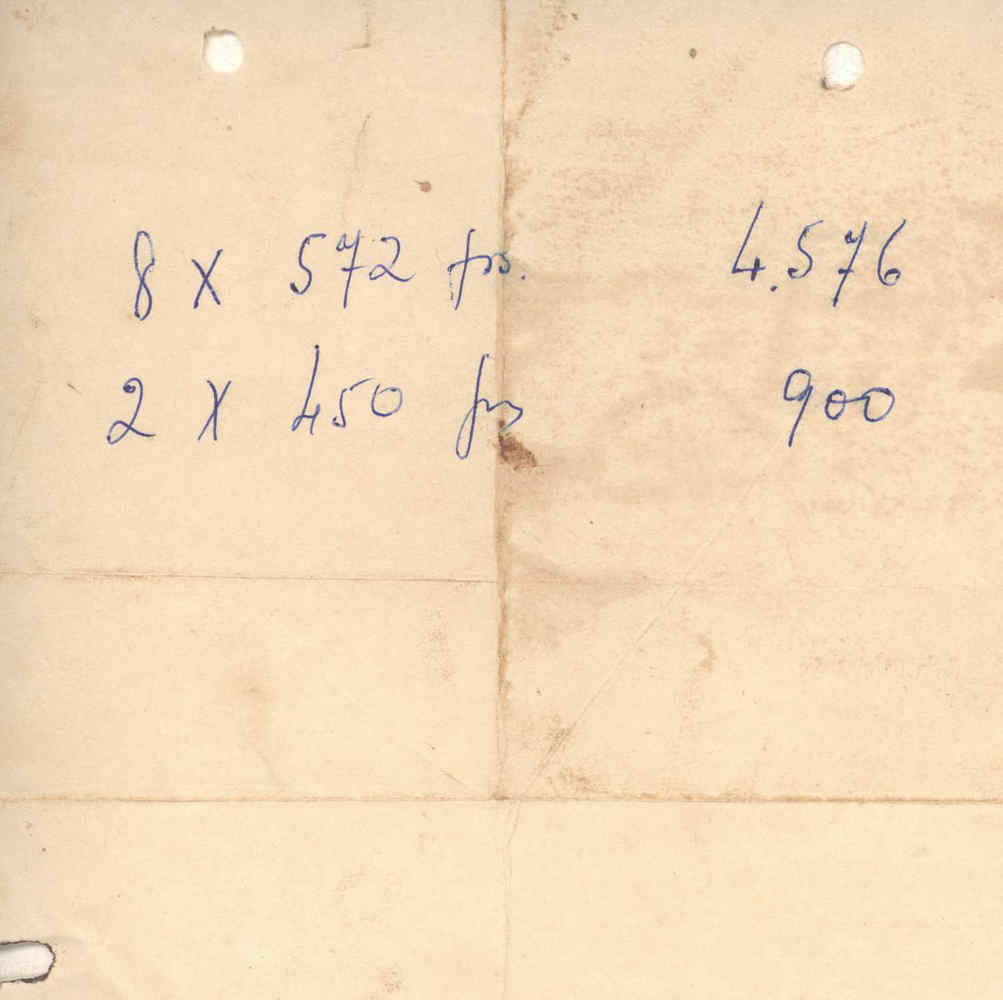 8 x 572 frs. 4.576
2 x 450 frs 900